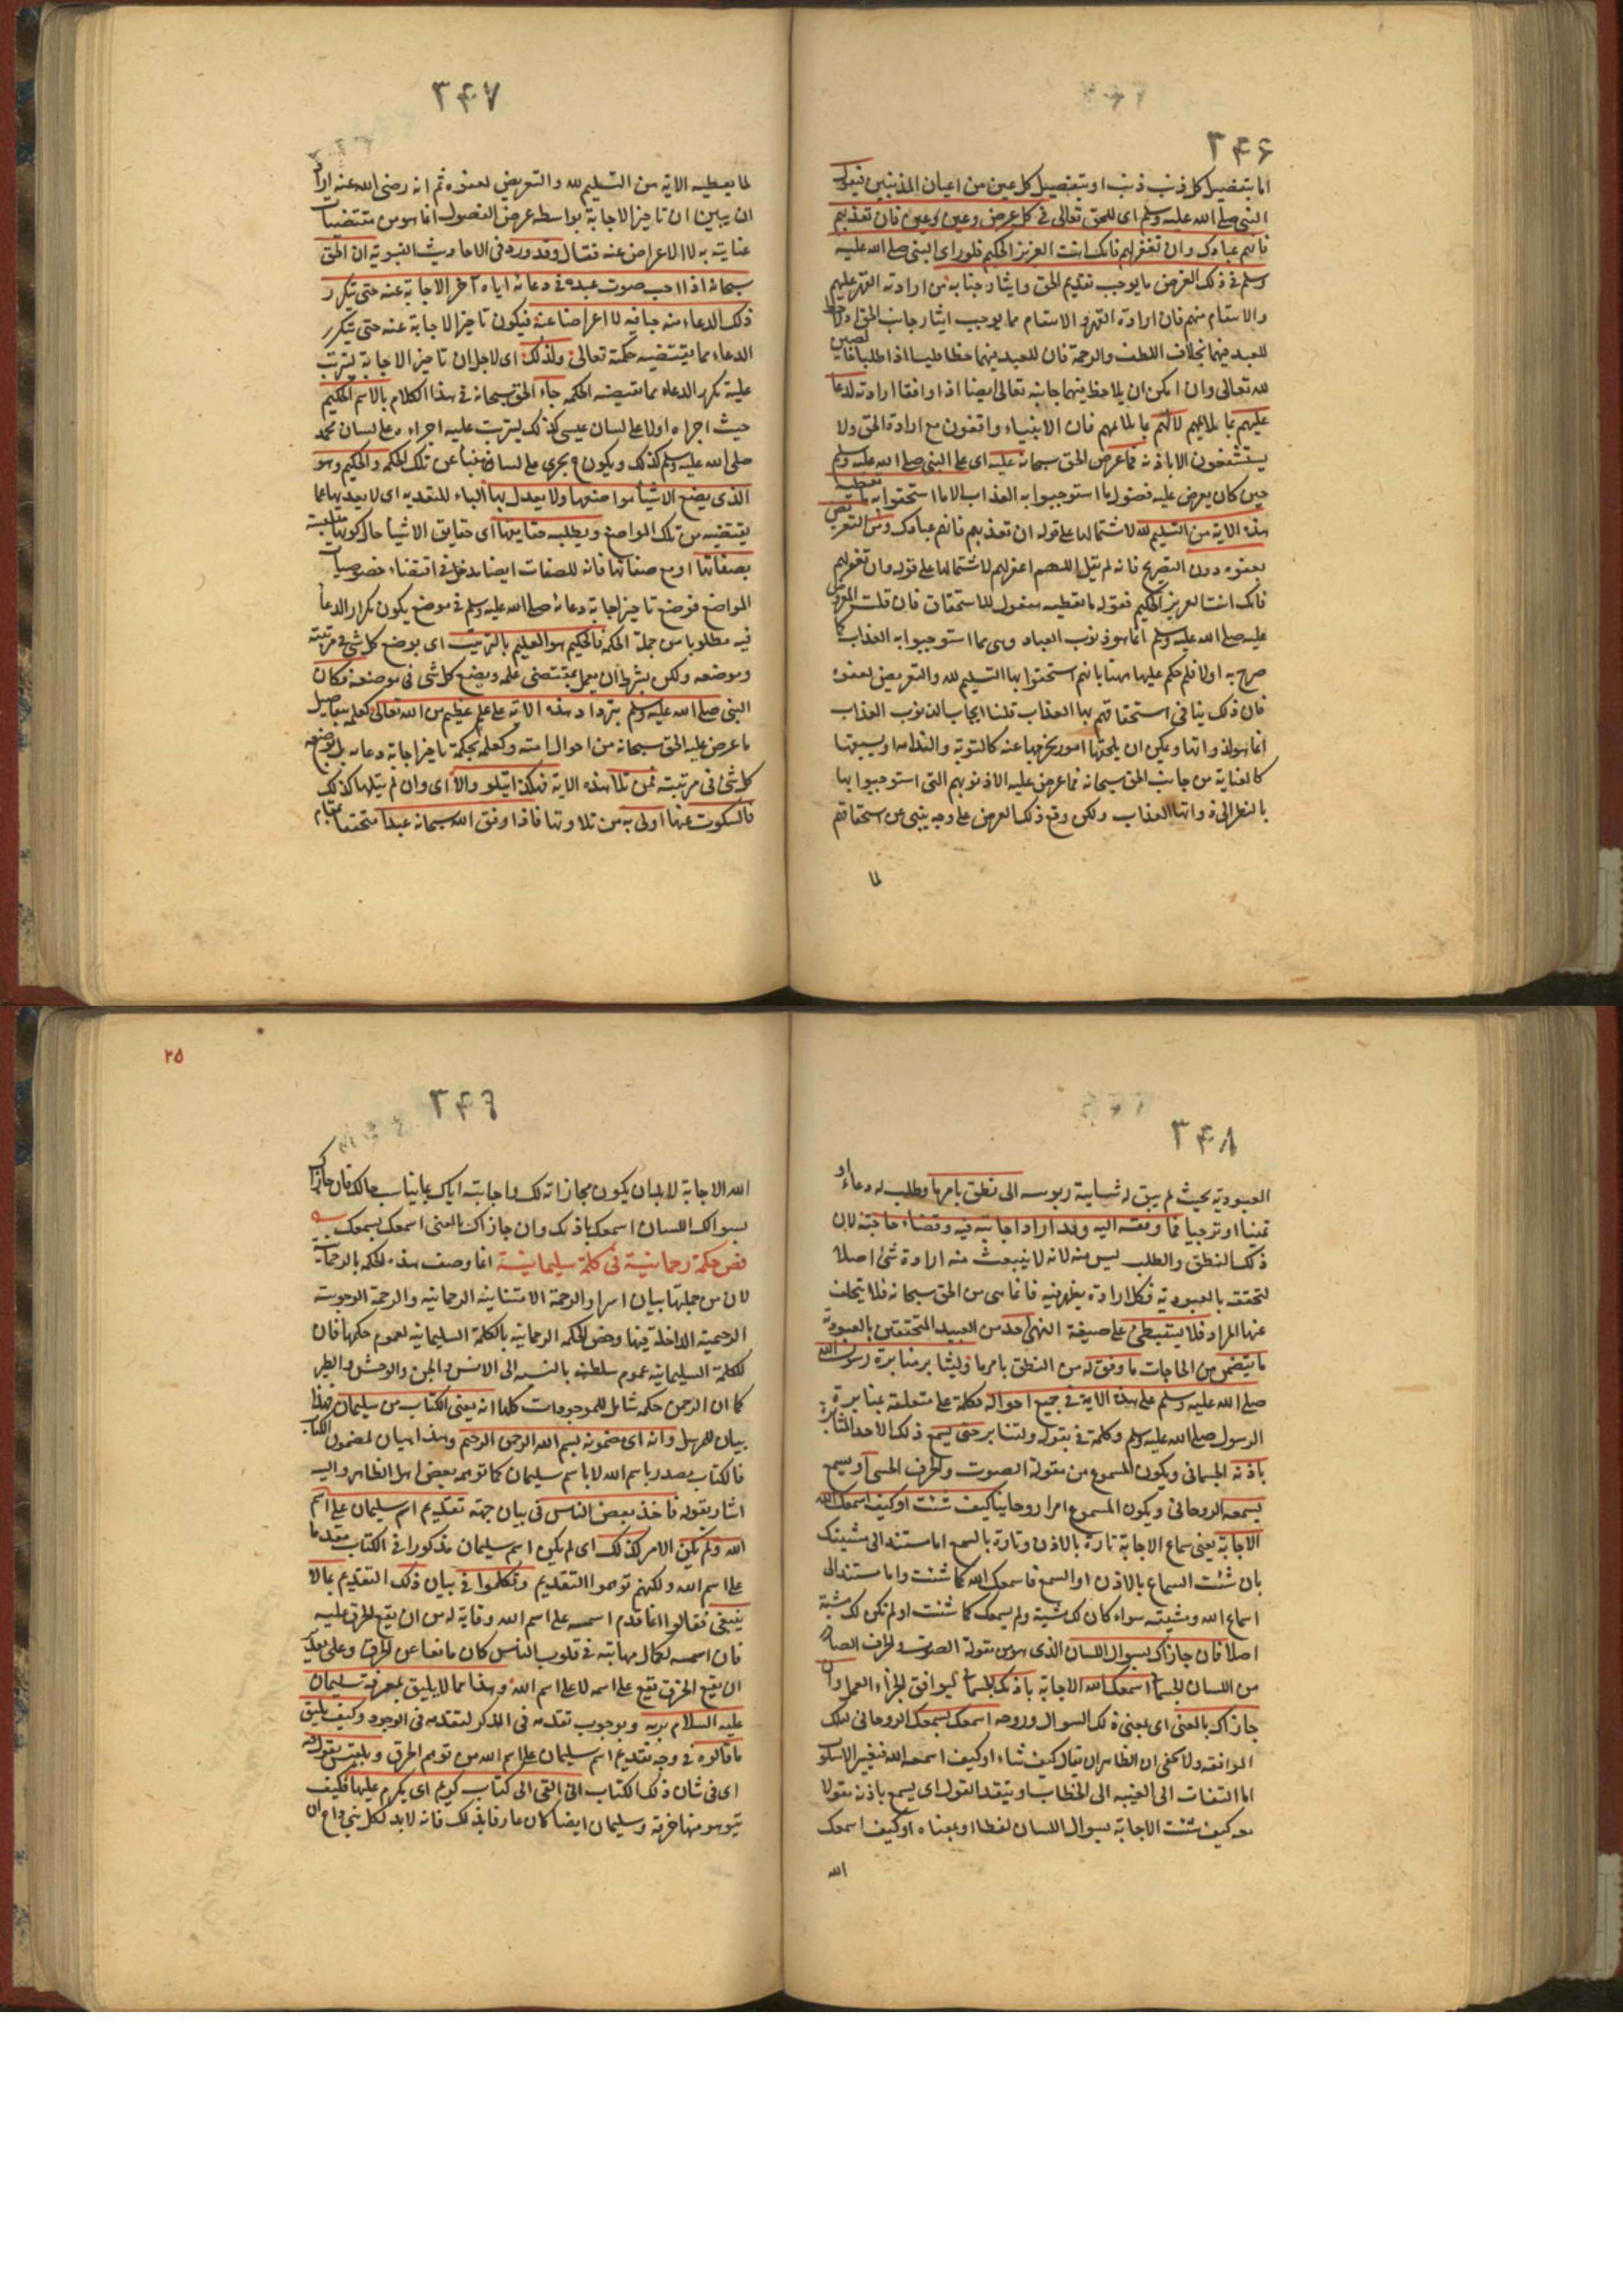 ٣٤٦
اما بتفضيل كل ذنب ذنب او بتفصيل كل عين من اعيان المذنبين فيقول
النبي صلى الله عليه وسلم اى للحق تعالى فى كل عرض وعين وعين فان تعذبهم
فانهم عبادك وان تغفر لهم فانك انت العزيز الحكيم فلو راى النبي صلى الله عليه
وسلم فى ذلك العرض ما يوجب تقديم الحق وايثار جنابه من ارادته القهر عليهم
والانتقام منهم فان ارادة القهر والانتقام مما يوجب ايثار جانب الحق
للعبد فيهما بخلاف اللطف والرحمة فان للعبد فيهما حظا طلبا اذا طلبا
لله تعالى وان امكن ان يلاحظ فيهما جانبه تعالى ايضا اذا وافقا ارادته لدعا
عليهم بما يلائمهم لا لهم بما يلائمهم فان الانبياء واقفون مع ارادة الحق ولا
يستشفعون الا باذنه فما عرض الحق سبحانه عليه اى على النبي صلى الله عليه وسلم
حين كان يعرض عليه فصول ما استوجبوا به العذاب الا ما استحقوا به ما تعطيه
هذه الاية من التسليم لله لاشتمالها على قوله ان تعذبهم فانهم عبادك ومن التعريض
بعفوه دون التصريح فانه لم يقل اللهم اغفر لهم لاشتمالها على قوله وان تغفر لهم
فانك انت العزيز الحكيم فقوله ما تعطيه مفعول للاستحقاق فان قلت المعروض
عليه صلى الله عليه وسلم انما هو ذنوب العباد وهى مما استوجبوا به العذاب كما
صرح به اولا فلم حكم عليها ههنا بانهم استحقوا بها التسليم لله والتعريض لعفوه
فان ذلك ينافى استحقاقهم بها العذاب قلنا ايجاب الذنوب العذاب
انما هو لذواتها ويمكن ان يلحقها امور يخرجها عنه كالتوبة والندامة او يسبقها
كالعناية من جانب الحق سبحانه فما عرض عليه الا ذنوبهم التى استوجبوا بها
بالنظر الى ذواتها العذاب ولكن وقع ذلك العرض على وجه ينبى عن استحقاقهم
لما
٣٤٧
لما يعطيه الاية من التسليم لله والتعريض لعفوه ثم انه رضى الله عنه اراد
ان يبين ان تاخير الاجابة بواسطة عرض الفصول انما هو من مقتضيات
عنايته به لا الاعراض عنه فقال وقد ورد فى الاحاديث النبوية ان الحق
سبحانه اذا احب صوت عبده فى دعائه اياه اخر الاجابة عنه حتى يتكرر
ذلك الدعاء منه حبا فيه لا اعراضا عنه فيكون تاخير الاجابة عنه حتى يتكرر
الدعاء مما يقتضيه حكمته تعالى ولذلك اى لاجل ان تاخير الاجابة يترتب
عليه تكرر الدعاء مما تقتضيه الحكمه جاء الحق سبحانه فى هذا الكلام بالاسم الحكيم
حيث اجراه اولا على لسان عيسى كذلك ليترتب عليه اجراء وعلى لسان محمد
صلى الله عليه وسلم كذلك ويكون جرى على لسان منبأ عن تلك الحكمه والحكيم وهو
الذى يضع الاشياء مواضعها ولا يعدل بها الباء للتعدية اى لا يعديها عما
يقتضيه من تلك المواضع ويطلبه حقايقها اى حقايق الاشياء حال كونها متلبسة
بصفاتها او مع صفاتها فانه للصفات ايضا مدخل فى اقتضاء خصوصيات
المواضع فوضع تاخير اجابة دعائه صلى الله عليه وسلم فى موضع يكون تكرار الدعاء
فيه مطلوبا من جملة الحكمه فالحكيم هو العليم بالترتيب اى بوضع كل شئ فى مرتبته
وموضعه ولكن بشرط ان يعمل بمقتضى علمه ويضع كل شئ فى موضعه فكان
النبي صلى الله عليه وسلم بترداد هذه الاية على علم عظيم من الله تعالى كعلمه بتفاصيل
ما عرض عليه الحق سبحانه من احوال امته وكعلمه بحكمة تاخير اجابة دعائه بل بوضعه
كل شئ فى مرتبته فمن تلا هذه الاية فهكذا يتلو والا اى وان لم يتلها كذلك
فالسكوت عنها اولى به من تلاوتها فاذا وفق الله سبحانه عبدا متحققا بمقام
٣٤٨
العبودية بحيث لم يبق له شايبة ربوبيه الى نطق بامرها وطلب له دعاء او
تمنيا او ترجيا فما وفقه اليه وقد اراد اجابته فيه وقضاء حاجته لان
ذلك النطق والطلب ليس منه لانه لا ينبعث منه ارادة شئ اصلا
لتحققه بالعبودية فكل ارادة يظهر فيه فانما هى من الحق سبحانه فلا يتخلف
عنها المراد فلا يستبطئ على صيغة النهى احد من العبيد المتحققين بالعبودية
ما يتضمن من الحاجات ما وفق له من النطق بامر ما وليثابر مثابرة رسول الله
صلى الله عليه وسلم على هذه الاية فى جميع احواله فكلمة على متعلقة بمثابرة
الرسول صلى الله عليه وسلم وكلمة فى بقوله وليثابر حتى يسمع ذلك الاحد المثابرة
باذنه الجسمانى ويكون المسموع من مقولة الصوت والحرف الحسى او يسمع
بسمعه الروحانى ويكون المسموع امرا روحانيا كيف شئت او كيف اسمعك الله
الاجابة يعنى سماع الاجابة تارة بالاذن وتارة بالسمع اما مستند الى مشيتك
بان شئت السماع بالاذن او السمع فاسمعك الله كما شئت واما مستند الى
اسماع الله ومشيته سواء كان لك مشية ولم يسمعك كما شئت او لم تكن لك مشية
اصلا فان جازاك بسوال اللسان الذى هو من مقولة الصوت والحرف الصادر
من اللسان الجسمانى اسمعك الله الاجابة باذنك الجسمانى ليوافق الجزاء العمل وان
جازاك بالمعنى اى بمعنى ذلك السوال وروحه اسمعك بسمعك الروحانى لتلك
الموافقه ولا يخفى ان الظاهر ان يقال كيف شاء او كيف اسمعه الله فتغير الاسلوب
اما التفات الى الغيبه الى الخطاب او بتقدير القول اى يسمع باذنه مقولا
معه كيف شئت الاجابة بسوال اللسان لفظا او بمعناه او كيف اسمعك
الله
٢٥
٣٤٩
الله الاجابة لا بد ان يكون مجازاته لك واجابته اياك بما يناسب حالك فان جازاك
بسوالك اللسان اسمعك باذنك وان جازاك بالمعنى اسمعك بسمعك
فص حكمة رحمانية فى كلمة سليمانية انما وصف هذه الحكمه بالرحمانية
لان من جملتها بيان اسرار الرحمة الامتنانية الرحمانيه والرحمة الوجوبيه
الرحيمية الداخلة فيها وخص الحكمه الرحمانيه بالكلمة السليمانيه لعموم حكمها فان
للكلمة السليمانيه عموم سلطنه بالنسبه الى الانس والجن والوحش والطير
كما ان الرحمن حكمه شامل للموجودات كلها انه يعنى الكتاب من سليمان فهذا
بيان للمرسل وانه اى مضمونه بسم الله الرحمن الرحيم وهذا بيان لمضمون الكتاب
فالكتاب مصدر باسم الله لا باسم سليمان كما توهمه بعض اهل الظاهر واليه
اشار بقوله فاخذ بعض الناس فى بيان جهة تقديم اسم سليمان على اسم
الله ولم يكن الامر كذلك اى لم يكن اسم سليمان مذكورا فى الكتاب مقدما
على اسم الله ولكنهم توهموا التقديم وتكلموا فى بيان ذلك التقديم بما لا
ينبغى فقالوا انما قدم اسمه على اسم الله وقاية له من ان يقع الخرق عليه
فان اسمه لكمال مهابته فى قلوب الناس كان مانعا عن الخرق وعلى تقدير
ان يقع الخرق تقع على اسمه لا على اسم الله وهذا مما لا يليق بمعرفة سليمان
عليه السلام بربه وبوجوب تقدمه فى الذكر لتقدمه فى الوجود وكيف يليق
ما قالوه فى وجه تقديم اسم سليمان على اسم الله من توهم الخرق وبلقيس تقول فيه
اى فى شان ذلك الكتاب انى القى الى كتاب كريم اى يكرم عليها فكيف
يتوهم منها خرقه وسليمان ايضا كان عارفا بذلك فانه لا بد لكل نبى